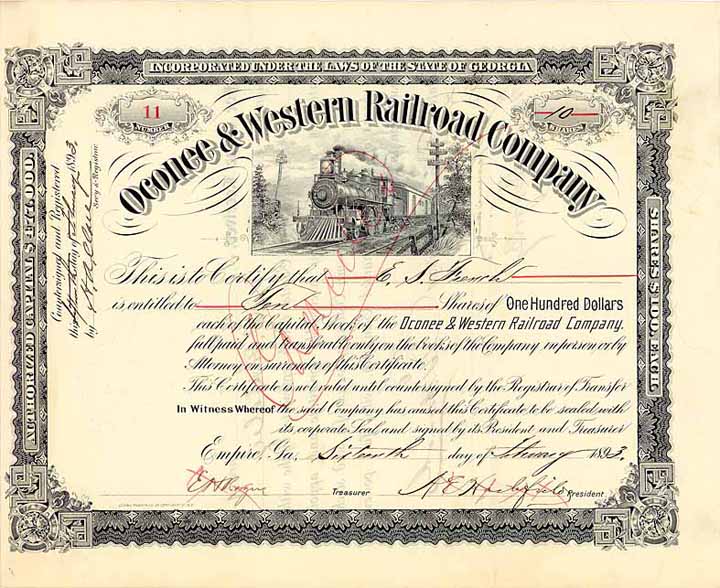 INCORPORATED UNDER THE LAWS OF THE STATE OF GEORGIA
11
NUMBER
10
SHARES
Oconee & Western Railroad Company
AUTHORIZED CAPITAL $476,000.
SHARES $100. EACH
Countersigned and Registered
this day of 1893
by
Secy & Registrar
This is to Certify that E. S. French
is entitled to Ten Shares of One Hundred Dollars
each of the Capital Stock of the Oconee & Western Railroad Company.
full paid and transferable only on the books of the Company in person or by
Attorney on surrender of this Certificate.
This Certificate is not valid until countersigned by the Registrar of Transfer
In Witness Whereof the said Company has caused this Certificate to be sealed with
its corporate Seal and signed by its President and Treasurer
Empire, Ga., Sixteenth day of 1893.
Treasurer
President
Cancelled